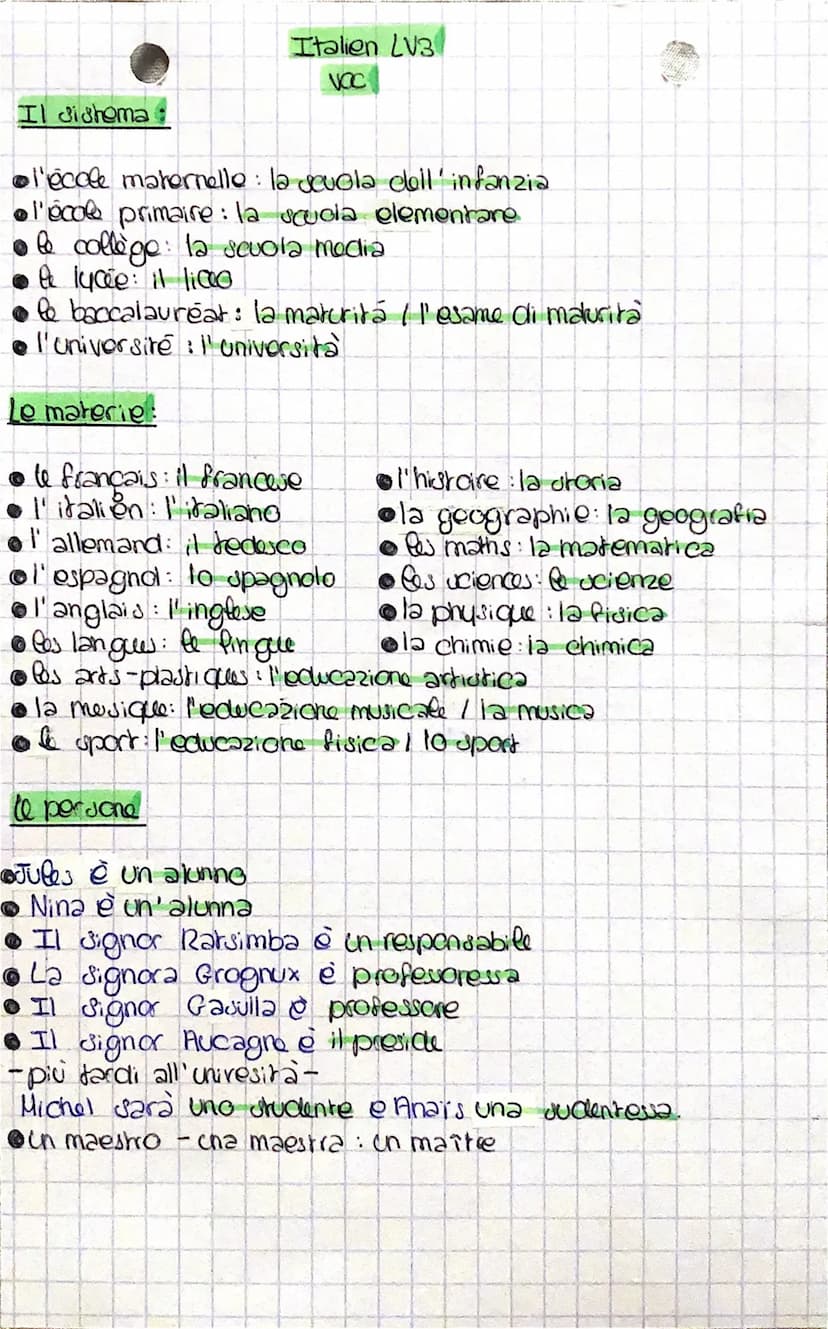 Italien LV3
VOC
Il sistema :
• l'école maternelle : la scuola dell'infanzia
• l'école primaire : la scuola elementare
• le collège : la scuola media
• le lycée : il liceo
• le baccalauréat : la maturità / l'esame di maturità
• l'université : l'università
Le materie :
• le français : il francese
• l'italien : l'italiano
• l'allemand : il tedesco
• l'espagnol : lo spagnolo
• l'anglais : l'inglese
• les langues : le lingue
• les arts-plastiques : l'educazione artistica
• la musique : l'educazione musicale / la musica
• le sport : l'educazione fisica / lo sport
• l'histoire : la storia
• la geographie : la geografia
• les maths : la matematica
• les sciences : le scienze
• la physique : la fisica
• la chimie : la chimica
Le persone
• Jules è un alunno
• Nina è un'alunna
• Il signor Ratsimba è un responsabile
• La signora Grognux è professoressa
• Il signor Gasulla è professore
• Il signor Aucagne è il preside
- più tardi all'univesità -
Michel sarà uno studente e Anaïs una sudentessa.
• un maestro - una maestra : un maître